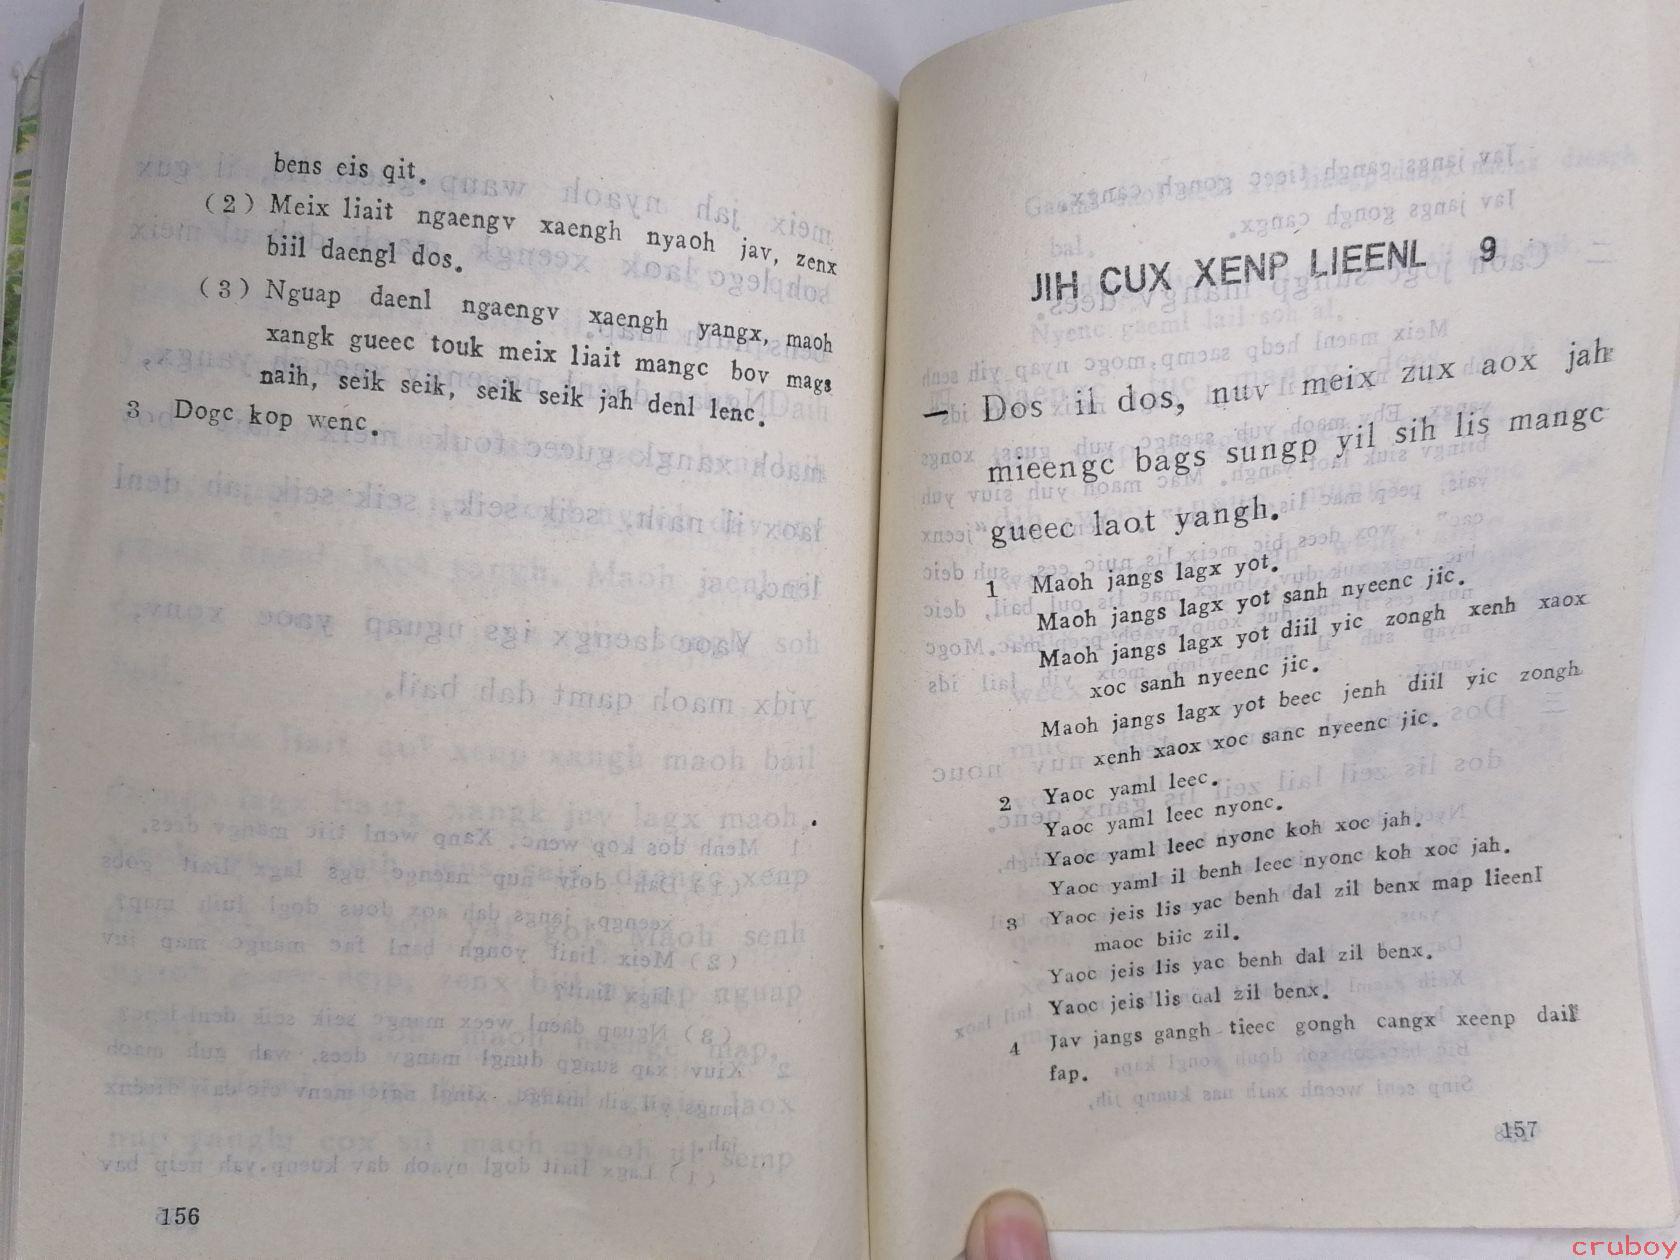 bens eis qit.
(2) Meix liait ngaengv xaengh nyaoh jav, zenx
biil daengl dos.
(3) Nguap daenl ngaengv xaengh yangx, maoh
xangk gueec touk meix liait mangc bov mags
naih, seik seik, seik seik jah denl lenc.
3 Dogc kop wenc.
156
JIH CUX XENP LIEENL 9
一 Dos il dos, nuv meix zux aox jah
mieengc bags sungp yil sih lis mangc
gueec laot yangh.
1 Maoh jangs lagx yot.
Maoh jangs lagx yot sanh nyeenc jic.
Maoh jangs lagx yot diil yic zongh xenh xaox
xoc sanh nyeenc jic.
Maoh jangs lagx yot beec jenh diil yic zongh
xenh xaox xoc sanc nyeenc jic.
2 Yaoc yaml leec.
Yaoc yaml leec nyonc.
Yaoc yaml leec nyonc koh xoc jah.
Yaoc yaml il benh leec nyonc koh xoc jah.
3 Yaoc jeis lis yac benh dal zil benx map lieenl
maoc biic zil.
Yaoc jeis lis yac benh dal zil benx.
Yaoc jeis lis dal zil benx.
4 Jav jangs gangh tieec gongh cangx xeenp dail
fap.
157
cruboy